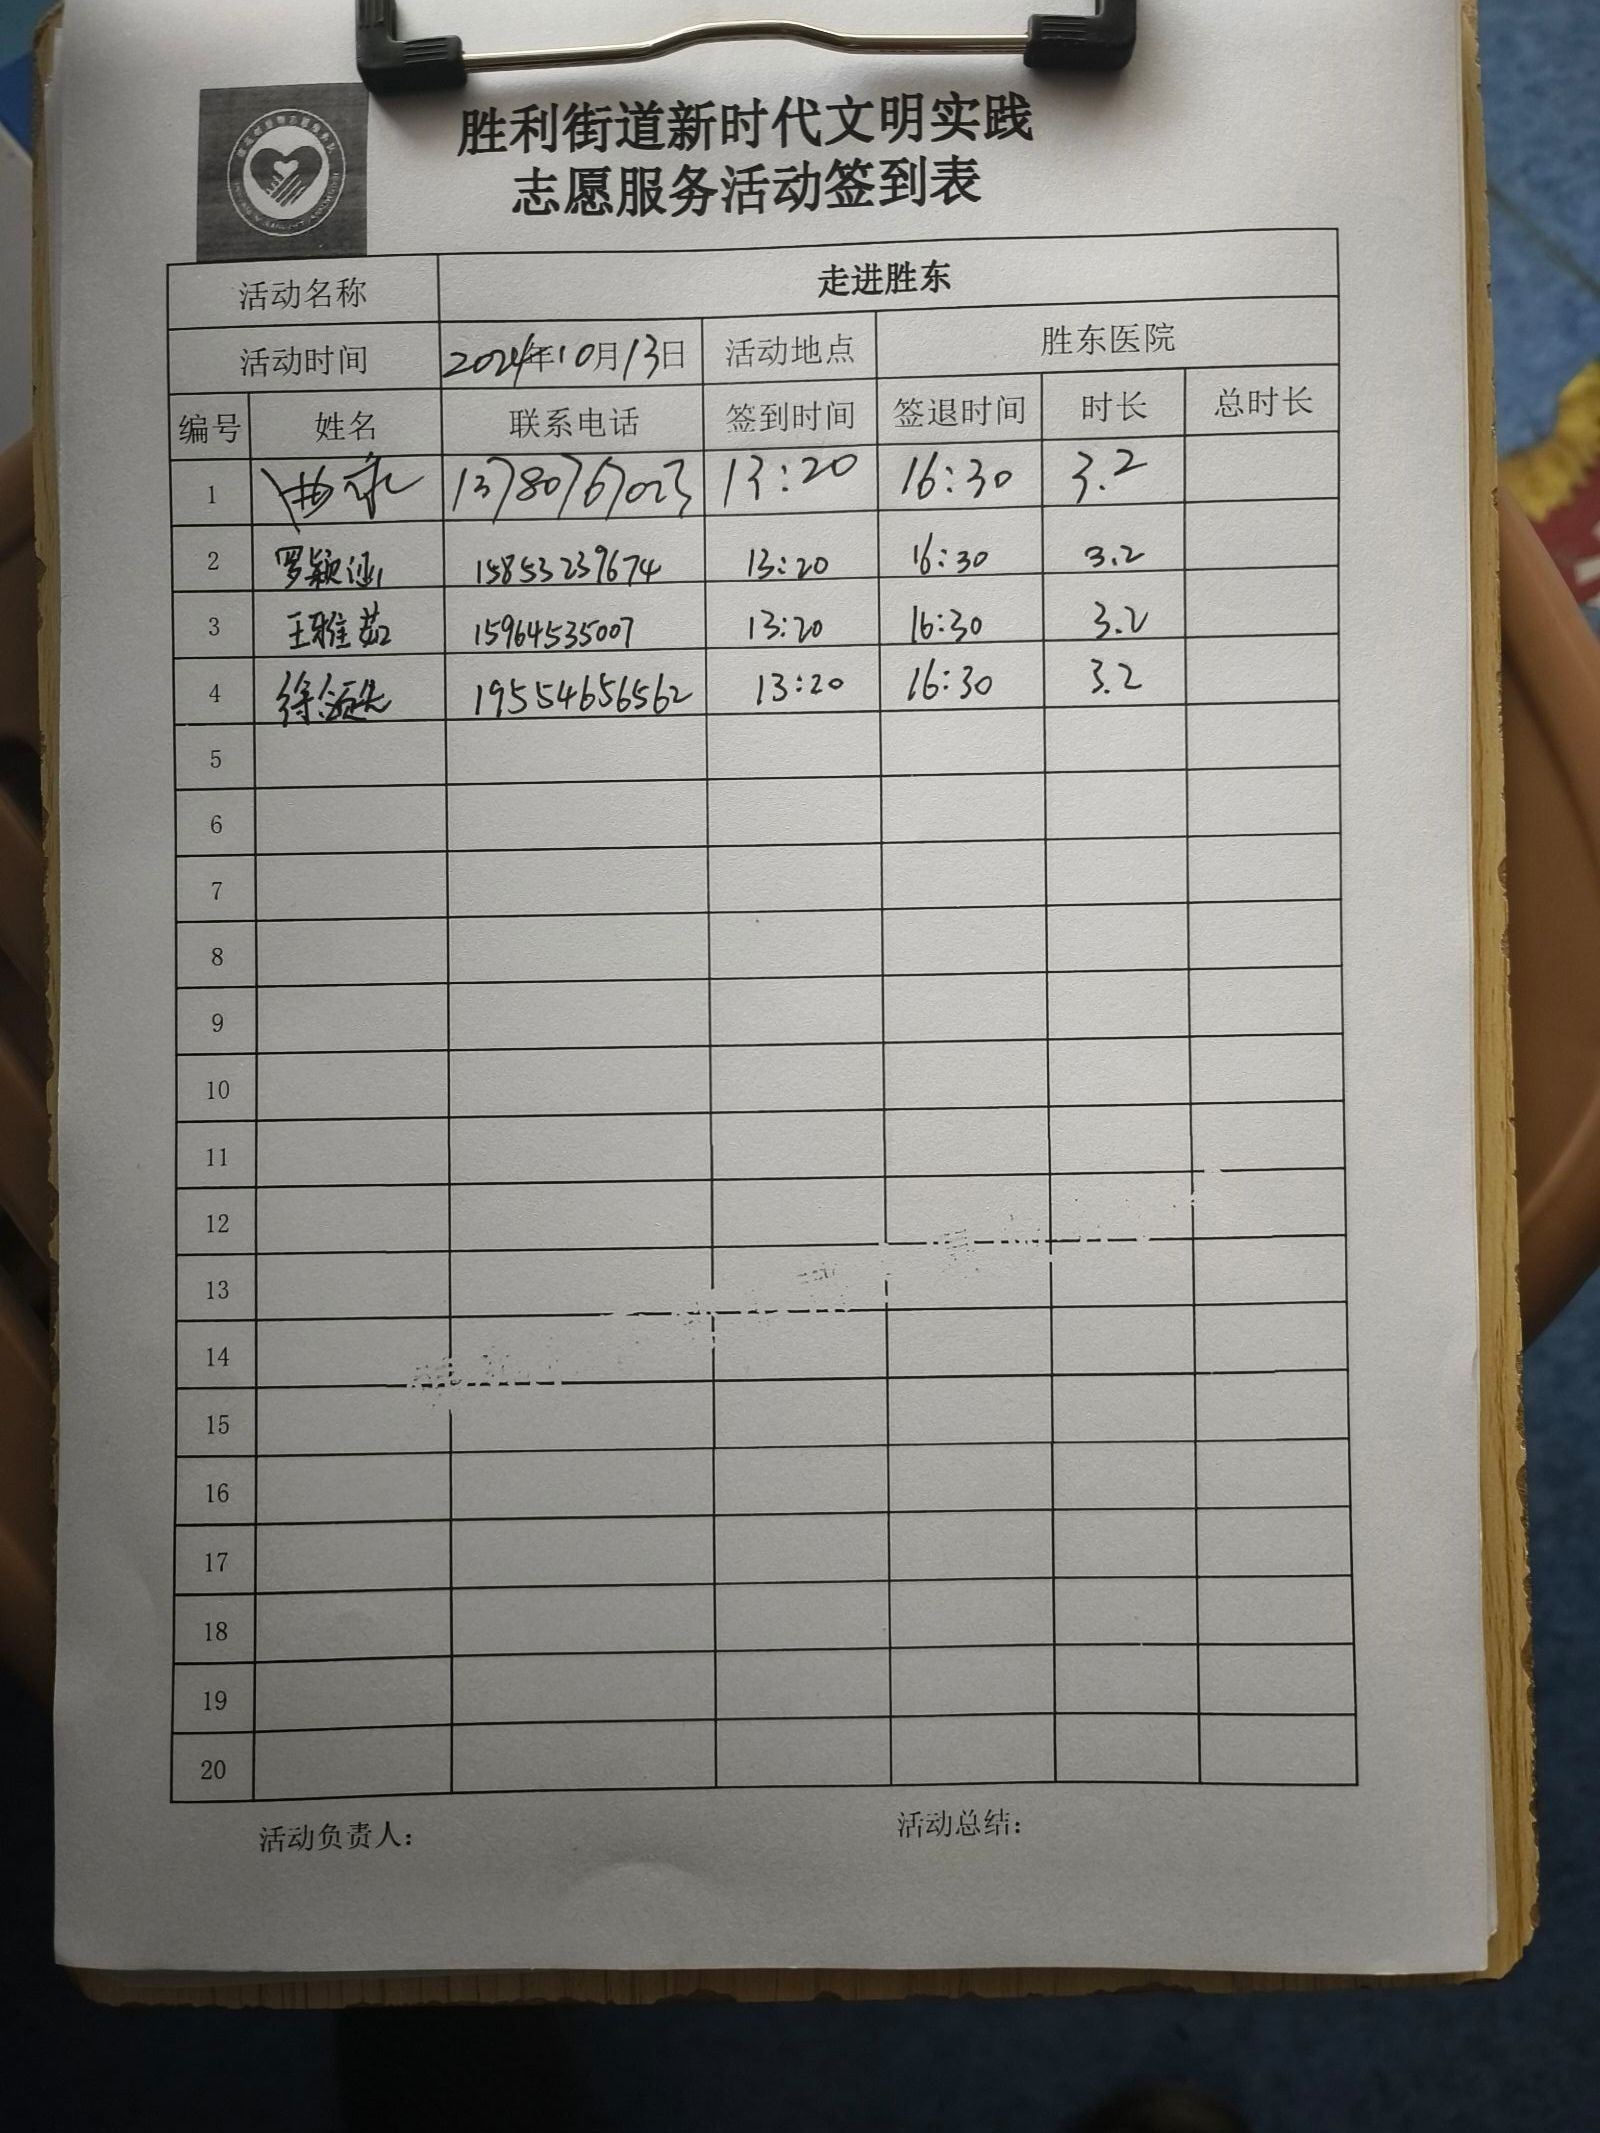 胜利街道新时代文明实践
志愿服务活动签到表
活动名称 走进胜东
活动时间 2024年10月13日 活动地点 胜东医院
编号 姓名 联系电话 签到时间 签退时间 时长 总时长
1 曲 13780767023 13:20 16:30 3.2
2 罗颖 15853239674 13:20 16:30 3.2
3 王雅茹 15964535007 13:20 16:30 3.2
4 徐 19554656562 13:20 16:30 3.2
5
6
7
8
9
10
11
12
13
14
15
16
17
18
19
20
活动负责人： 活动总结：